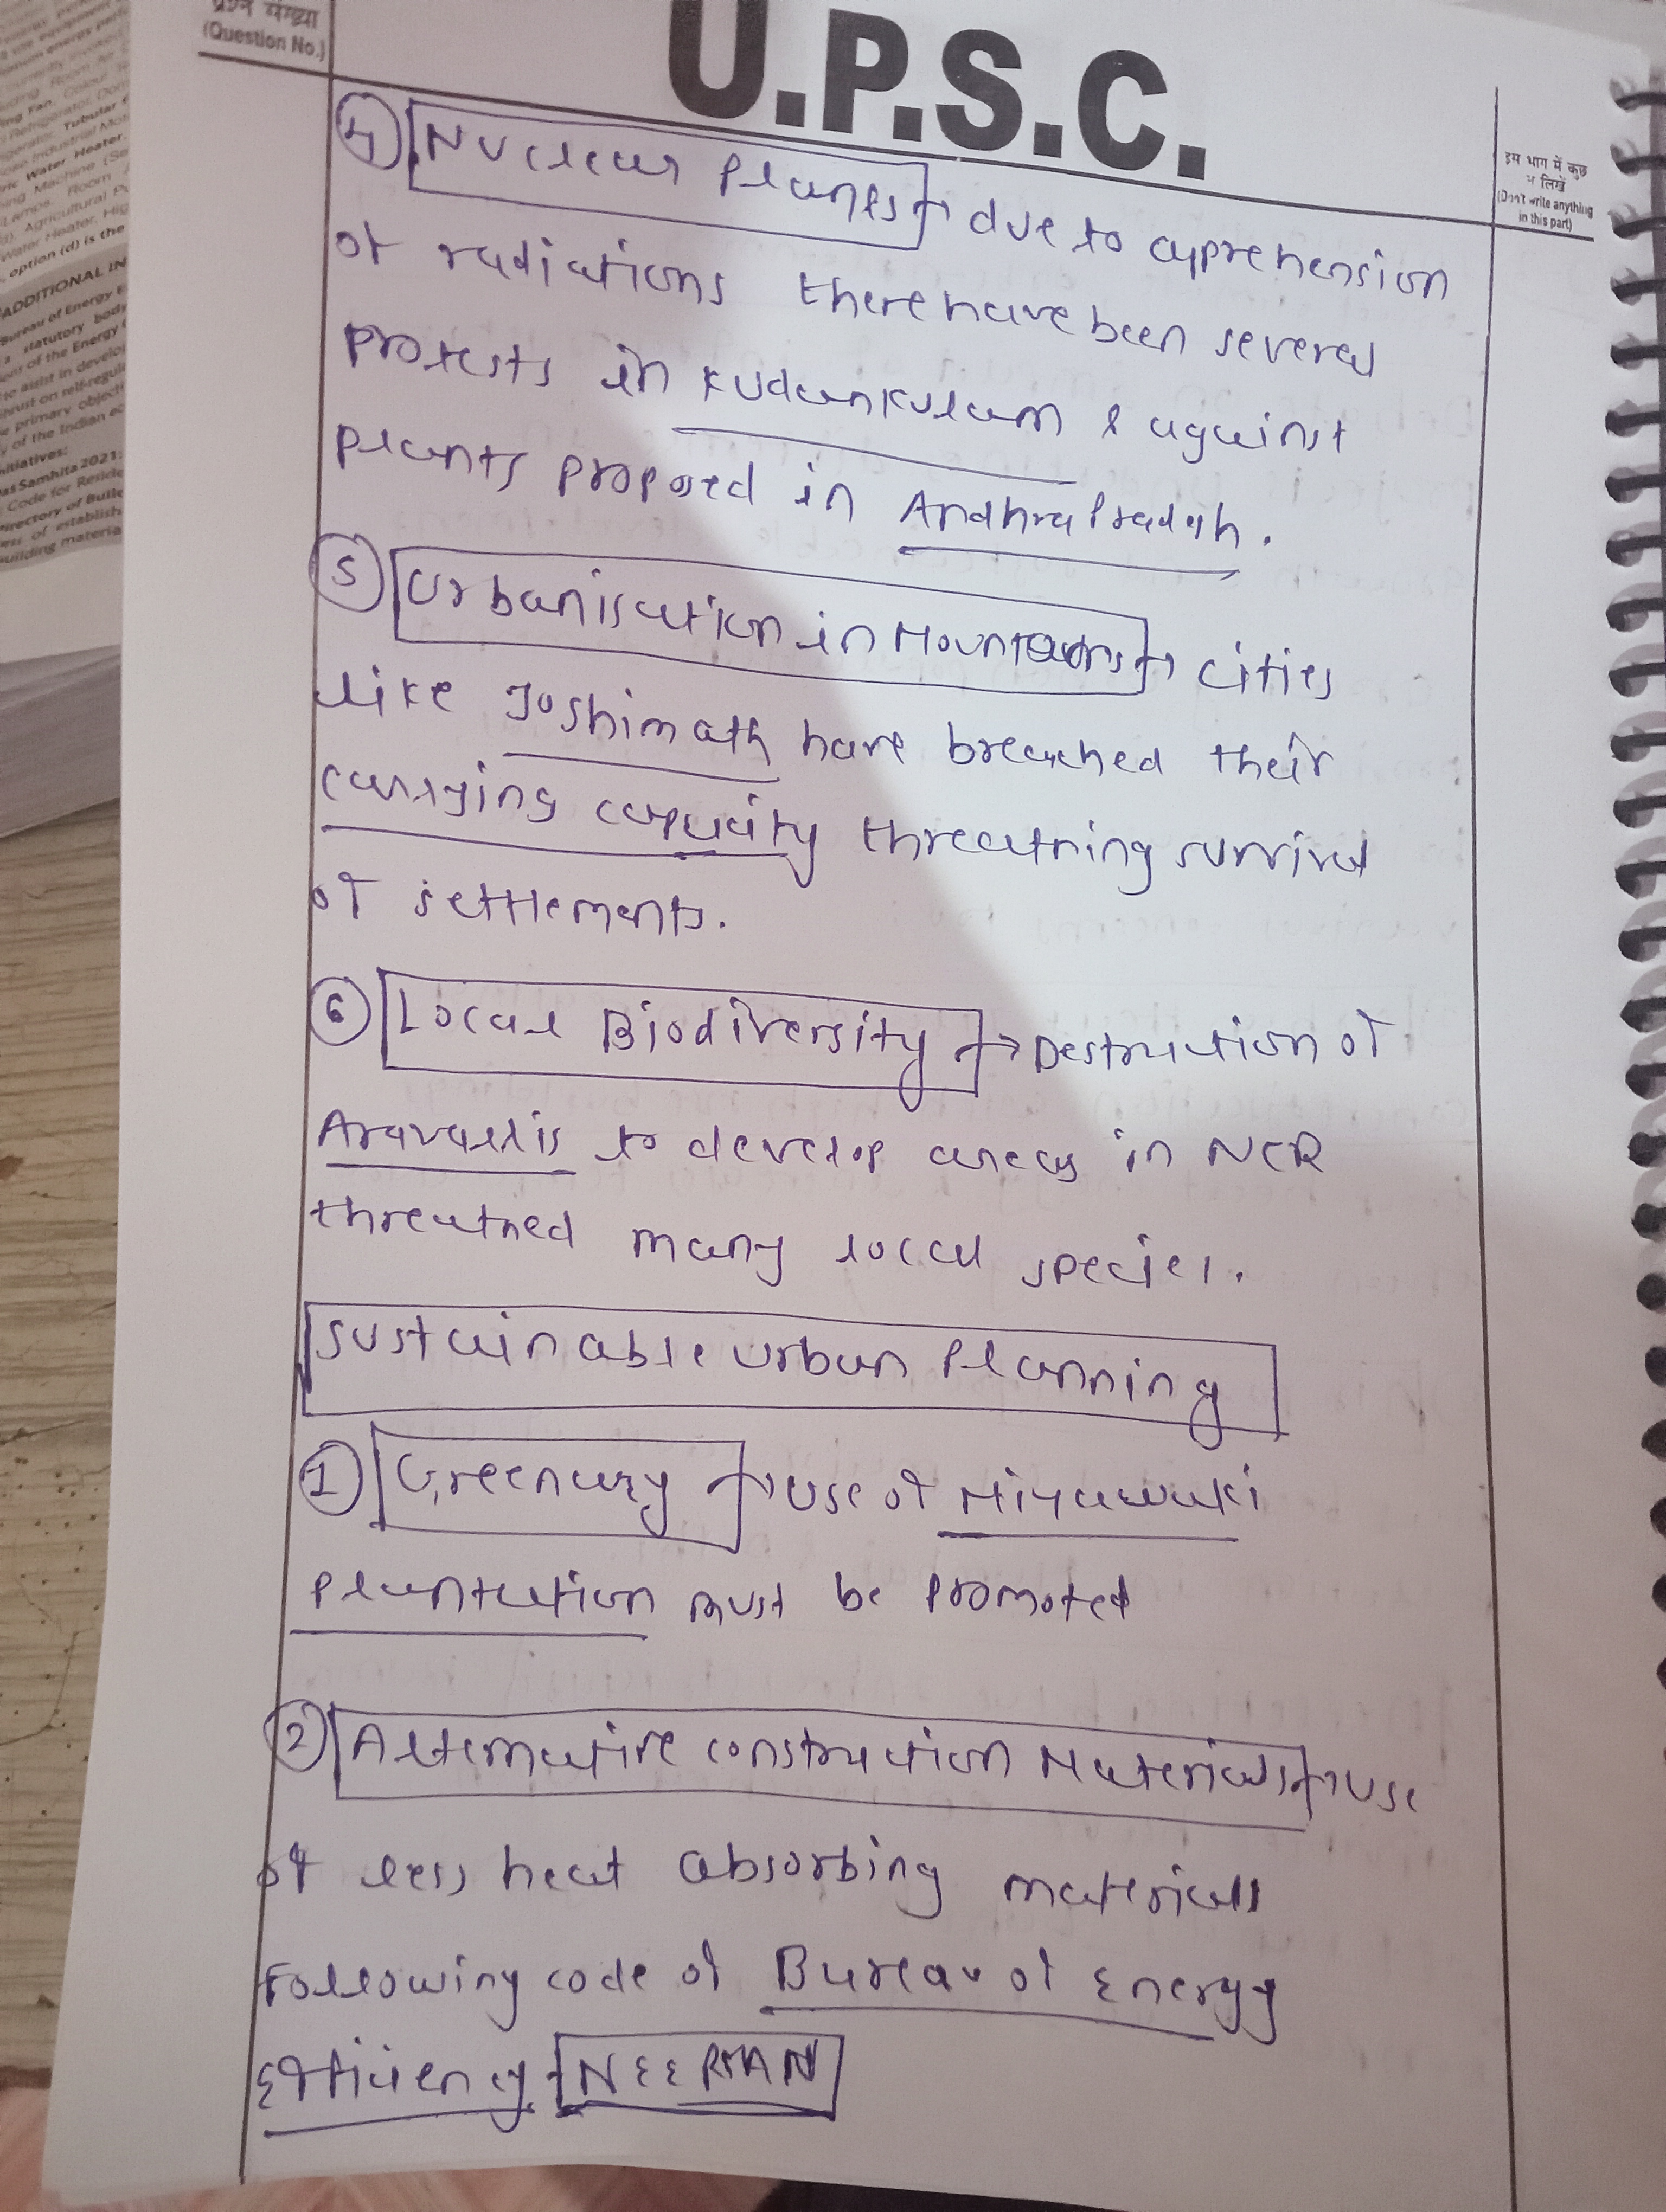 प्रश्न संख्या
(Question No.)
U.P.S.C.
इस भाग में कुछ
न लिखें
(Don't write anything
in this part)
4 Nuclear Plants → due to apprehension
of radiations there have been several
protests in Kudankulam & against
plants proposed in Andhra Pradesh.
5 Urbanisation in Mountains → cities
like Joshimath have breached their
carrying capacity threatning survival
of settlements.
6 Local Biodiversity → Destruction of
Aravallis to develop areas in NCR
threatned many local species.
Sustainable Urban Planning
1 Greenary → Use of Miyawaki
Plantation must be promoted
2 Alternative construction Materials → Use
of less heat absorbing materials
following code of Bureau of Energy
Efficiency NEERMAN
ing Fan
Tubular
Water Heater
option (d) is the
ADDITIONAL IN
Bureau of Energy E
a statutory body
of the Energy
to assist in develo
thrust on self-regul
primary object
of the Indian ec
nitiatives:
as Samhita 2021:
Code for Reside
irectory of Buil
ess of establish
uilding materia